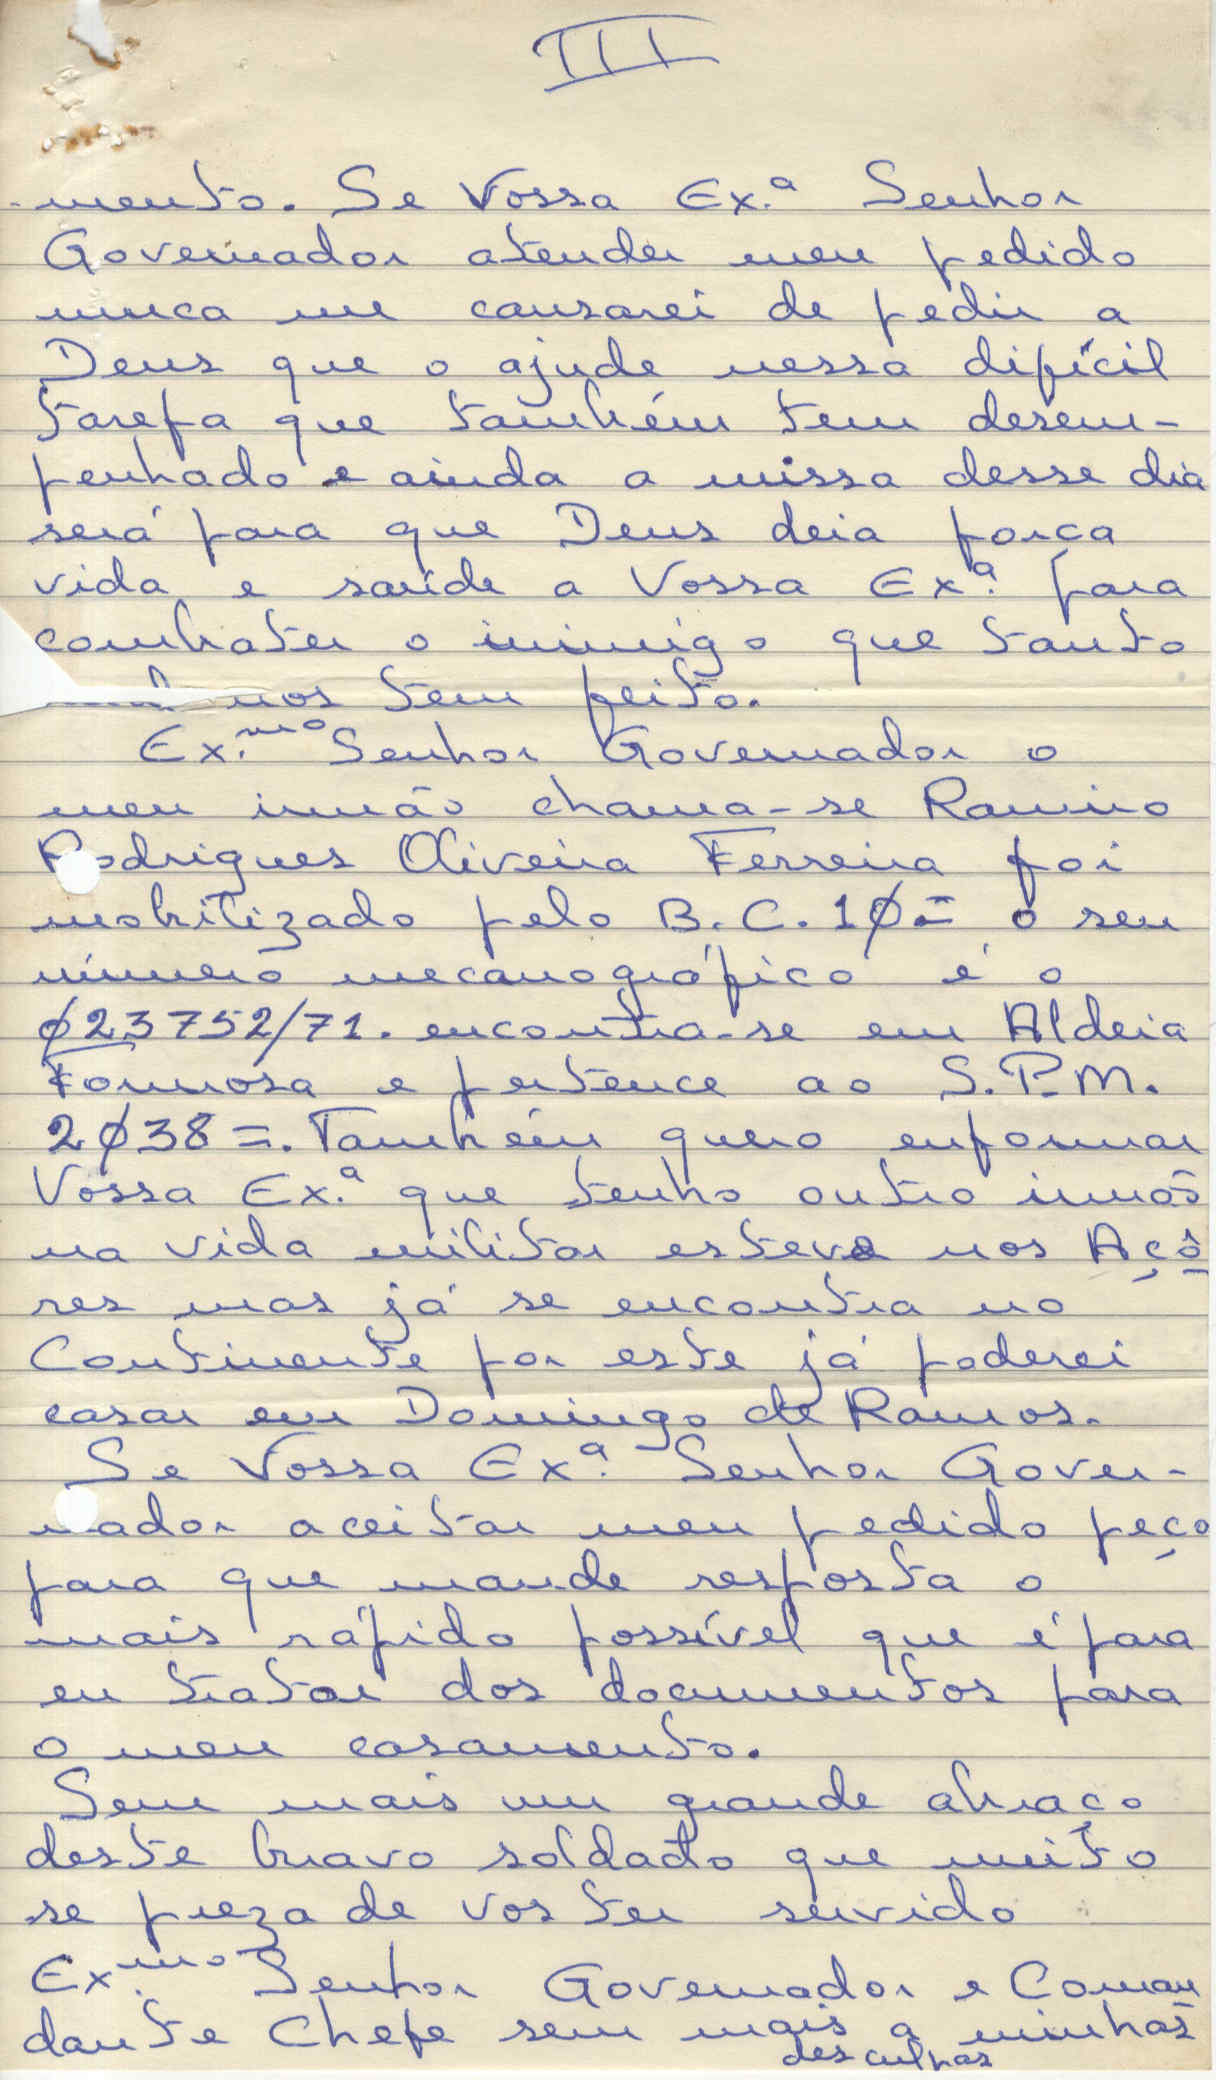 III
-mento. Se Vossa Ex.ª Senhor
Governador atender meu pedido
nunca me cansarei de pedir a
Deus que o ajude nessa difícil
tarefa que também tem desem-
penhado e ainda a missa desse dia
será para que Deus deia força
vida e saúde a Vossa Ex.ª para
combater o inimigo que tanto
nos tem feito.
Ex.mo Senhor Governador o
meu irmão chama-se Ramiro
Rodrigues Oliveira Ferreira foi
mobilizado pelo B.C. 1Ø= o seu
número mecanográfico é o
Ø23752/71. encontra-se em Aldeia
Formosa e pertence ao S.P.M.
2Ø38=. Também quero enformar
Vossa Ex.ª que tenho outro irmão
na vida militar esteve nos Açô-
res mas já se encontra no
Continente por este já poderei
casar em Domingo de Ramos.
Se Vossa Ex.ª Senhor Gover-
nador aceitar meu pedido peço
para que mande resposta o
mais rápido possível que é para
eu tratar dos documentos para
o meu casamento.
Sem mais um grande abraço
deste bravo soldado que muito
se preza de vos ter servido
Ex.mo Senhor Governador e Coman
dante Chefe sem mais a minhas
desculpas